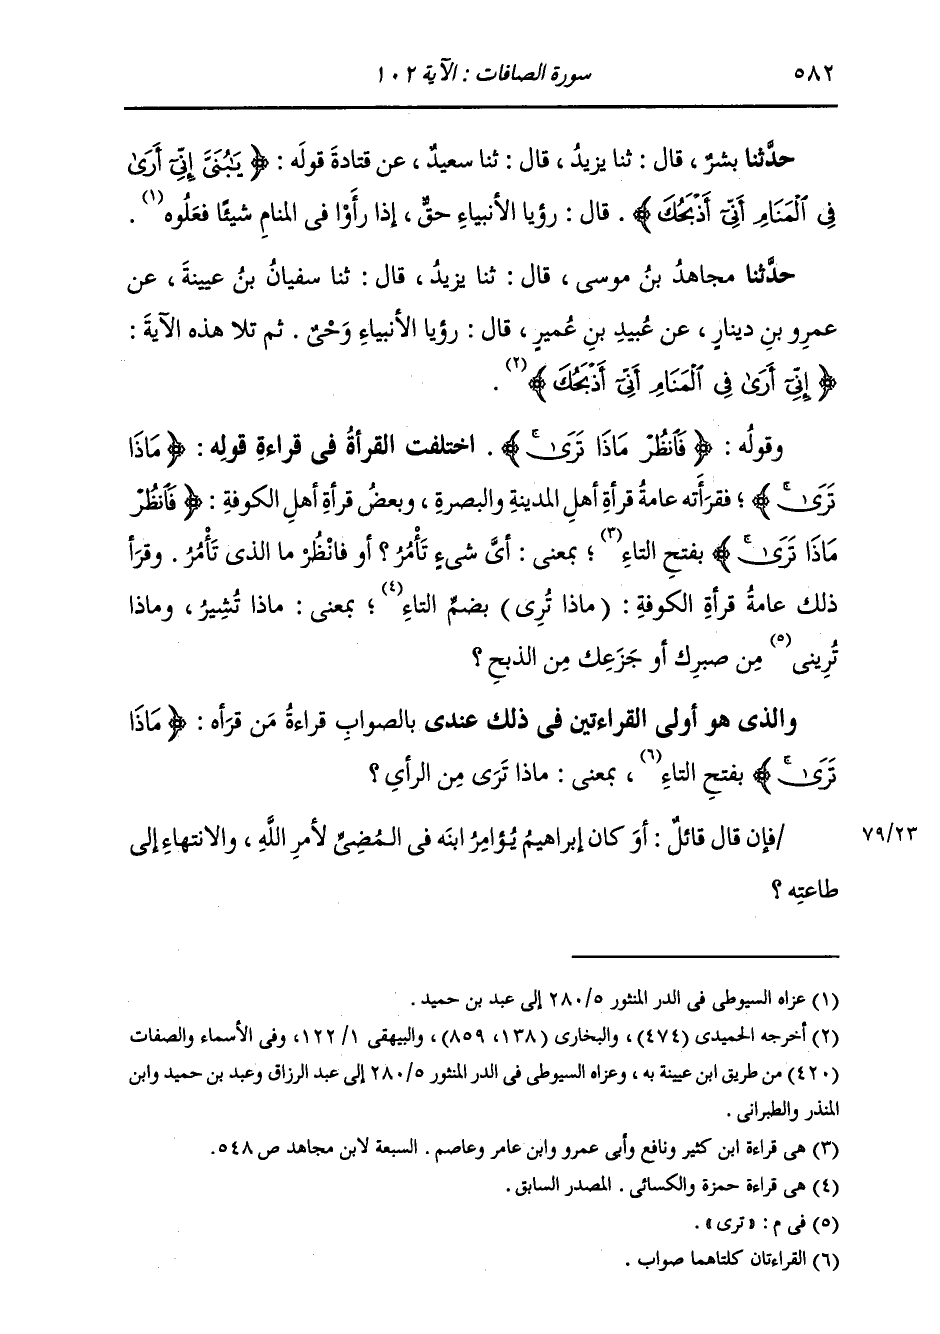 ٥٨٢ سورة الصافات : الآية ١٠٢
حدَّثنا بشرٌ ، قال : ثنا يزيدُ ، قال : ثنا سعيدٌ ، عن قتادةَ قولَه : ﴿ يَٰبُنَيَّ إِنِّيٓ أَرَىٰ
فِي ٱلْمَنَامِ أَنِّيٓ أَذْبَحُكَ ﴾ . قال : رؤيا الأنبياءِ حقٌّ ، إذا رأَوْا فى المنامِ شيئًا فعَلُوه(١) .
حدَّثنا مجاهدُ بنُ موسى ، قال : ثنا يزيدُ ، قال : ثنا سفيانُ بنُ عيينةَ ، عن
عمرِو بنِ دينارٍ ، عن عُبيدِ بنِ عُميرٍ ، قال : رؤيا الأنبياءِ وَحْىٌ . ثم تلا هذه الآيةَ :
﴿ إِنِّيٓ أَرَىٰ فِي ٱلْمَنَامِ أَنِّيٓ أَذْبَحُكَ ﴾(٢) .
وقولُه : ﴿ فَٱنظُرْ مَاذَا تَرَىٰۚ ﴾ . اختلفت القرأةُ فى قراءةِ قولِه : ﴿ مَاذَا
تَرَىٰۚ ﴾ ؛ فقرَأَته عامةُ قرأةِ أهلِ المدينةِ والبصرةِ ، وبعضُ قرأةِ أهلِ الكوفةِ : ﴿ فَٱنظُرْ
مَاذَا تَرَىٰۚ ﴾ بفتحِ التاءِ(٣) ؛ بمعنى : أىَّ شىءٍ تَأْمُرُ ؟ أو فانْظُرْ ما الذى تَأْمُرُ . وقرَأ
ذلك عامةُ قرأةِ الكوفةِ : ( ماذا تُرِى ) بضمِّ التاءِ(٤) ؛ بمعنى : ماذا تُشِيرُ ، وماذا
تُرِينى(٥) مِن صبرِك أو جَزَعِك مِن الذبحِ ؟
والذى هو أولى القراءتين فى ذلك عندى بالصوابِ قراءةُ مَن قرَأه : ﴿ مَاذَا
تَرَىٰۚ ﴾ بفتحِ التاءِ(٦) ، بمعنى : ماذا تَرَى مِن الرأىِ ؟
٧٩/٢٣ /فإن قال قائلٌ : أوَ كان إبراهيمُ يُؤامِرُ ابنَه فى المُضِىِّ لأمرِ اللَّهِ ، والانتهاءِ إلى
طاعتِه ؟
(١) عزاه السيوطى فى الدر المنثور ٢٨٠/٥ إلى عبد بن حميد .
(٢) أخرجه الحميدى (٤٧٤) ، والبخارى (١٣٨، ٨٥٩) ، والبيهقى ١/ ١٢٢، وفى الأسماء والصفات
(٤٢٠) من طريق ابن عيينة به ، وعزاه السيوطى فى الدر المنثور ٢٨٠/٥ إلى عبد الرزاق وعبد بن حميد وابن
المنذر والطبرانى .
(٣) هى قراءة ابن كثير ونافع وأبى عمرو وابن عامر وعاصم . السبعة لابن مجاهد ص ٥٤٨.
(٤) هى قراءة حمزة والكسائى . المصدر السابق .
(٥) فى م : « ترى» .
(٦) القراءتان كلتاهما صواب .